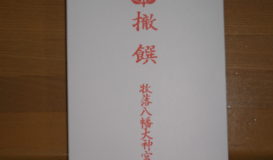 撤饌
牧落八幡大神宮